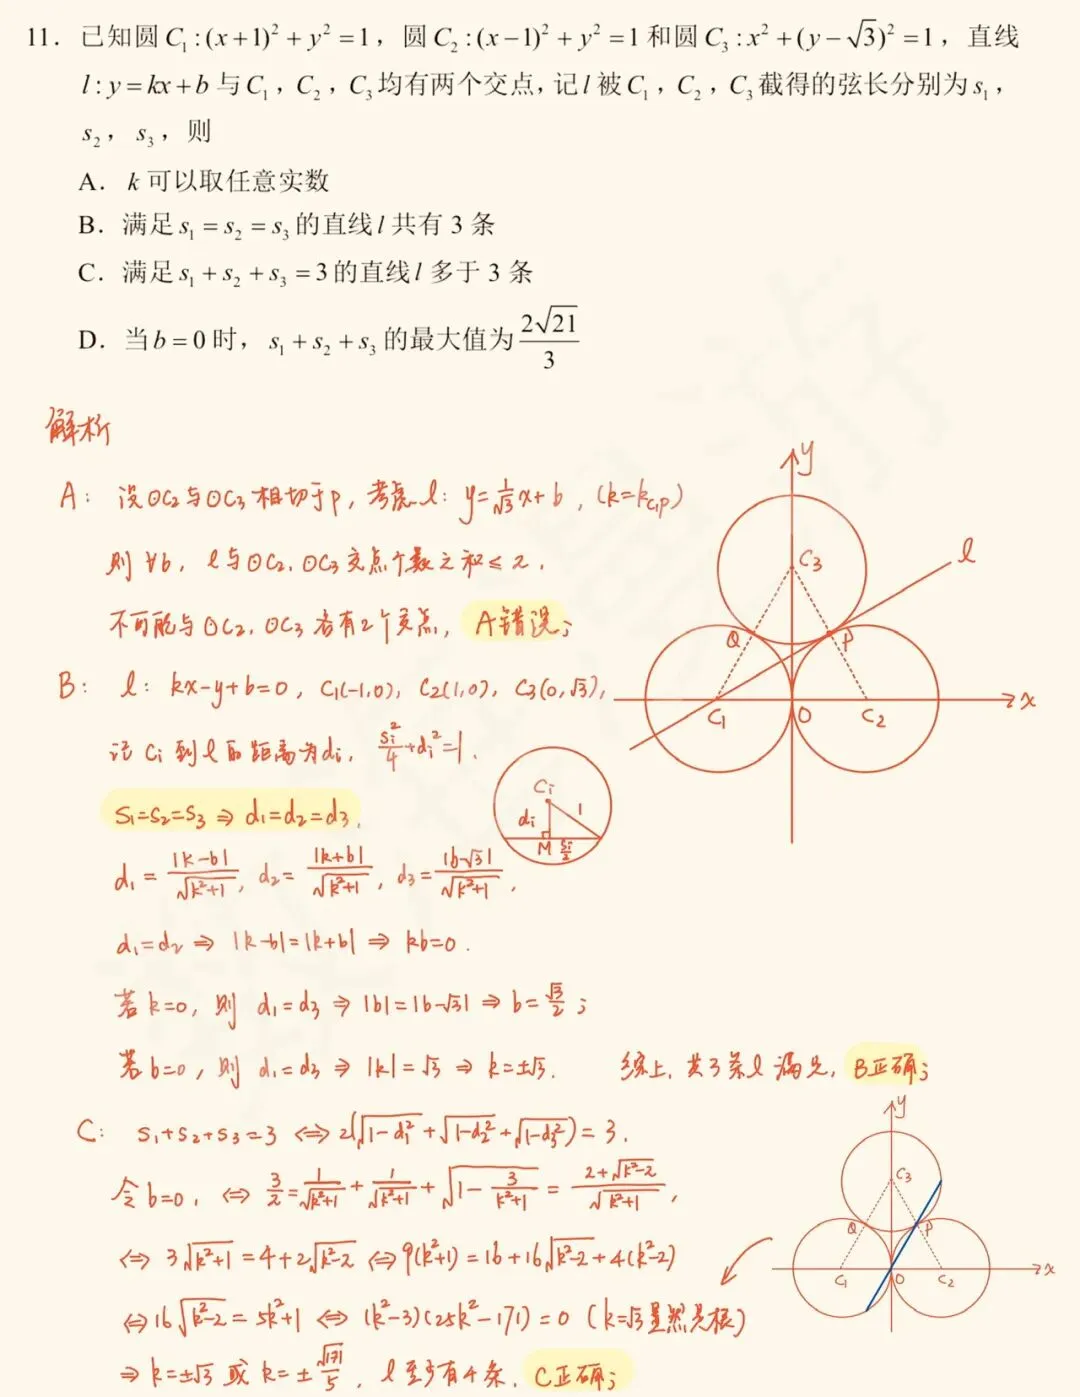 11. 已知圆 C₁:(x+1)²+y²=1，圆 C₂:(x−1)²+y²=1 和圆 C₃:x²+(y−√3)²=1，直线
l:y=kx+b 与 C₁，C₂，C₃ 均有两个交点，记 l 被 C₁，C₂，C₃ 截得的弦长分别为 s₁，
s₂，s₃，则
A. k 可以取任意实数
B. 满足 s₁=s₂=s₃ 的直线 l 共有 3 条
C. 满足 s₁+s₂+s₃=3 的直线 l 多于 3 条
D. 当 b=0 时，s₁+s₂+s₃ 的最大值为 2√21/3
解析
A: 设⊙C₂与⊙C₃相切于P，考虑 l: y=1/√3 x+b，(k=k_C₁P)
则 ∀b，l与⊙C₂，⊙C₃交点个数之和≤2，
不可能与⊙C₂，⊙C₃各有2个交点，A错误；
y
C₃
l
Q
P
C₁
O
C₂
x
B: l: kx-y+b=0，C₁(-1,0)，C₂(1,0)，C₃(0,√3)，
记 Cᵢ 到 l 的距离为dᵢ，sᵢ²/4+dᵢ²=1.
s₁=s₂=s₃ ⇒ d₁=d₂=d₃.
Cᵢ
dᵢ
1
M
sᵢ/2
d₁=|k-b|/√(k²+1)，d₂=|k+b|/√(k²+1)，d₃=|b-√3|/√(k²+1)，
d₁=d₂ ⇒ |k-b|=|k+b| ⇒ kb=0.
若k=0，则 d₁=d₃ ⇒ |b|=|b-√3| ⇒ b=√3/2；
若b=0，则 d₁=d₃ ⇒ |k|=√3 ⇒ k=±√3. 综上，共3条l满足，B正确；
C: s₁+s₂+s₃=3 ⇔ 2(√(1-d₁²)+√(1-d₂²)+√(1-d₃²))=3.
令b=0，⇔ 3/2=1/√(k²+1)+1/√(k²+1)+√(1-3/(k²+1))=(2+√(k²-2))/√(k²+1)，
⇔ 3√(k²+1)=4+2√(k²-2) ⇔ 9(k²+1)=16+16√(k²-2)+4(k²-2)
⇔ 16√(k²-2)=5k²+1 ⇔ (k²-3)(25k²-171)=0 (k=√3显然是根)
⇒ k=±√3 或 k=±√171/5，l至少有4条，C正确；
y
C₃
Q
P
C₁
O
C₂
x